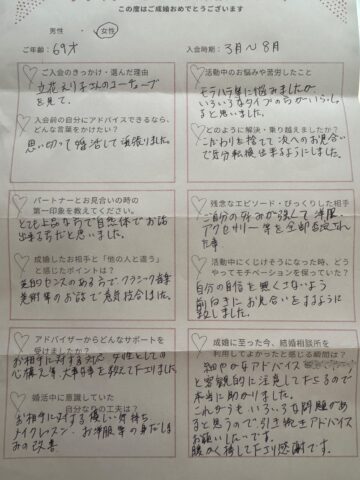 この度はご成婚おめでとうございます
男性 ・ 女性
ご年齢: 69才
入会時期: 3月〜8月
ご入会のきっかけ・選んだ理由
立花えりこさんのユーチューブ
を見て、
入会前の自分にアドバイスできるなら、
どんな言葉をかけたい?
思い切って婚活して頑張りました。
パートナーとお見合いの時の
第一印象を教えてください。
とても上品な方で自然体でお話
出来る方だと思いました。
成婚したお相手と「他の人と違う」
と感じたポイントは?
美的センスのある方でクラシック音楽
美術等のお話で意気投合した。
アドバイザーからどんなサポートを
受けましたか?
お相手に対する対応 女性としての
心構え等、大事な事を教えて下さりました
婚活中に意識していた
自分なりの工夫は?
お相手に対する優しい気持ち
メイクレッスン、お洋服等の身だしな
みの改善
活動中のお悩みや苦労したこと
モラハラ等に悩みましたが
いろいろなタイプの方がいらっしゃ
ると思いました。
どのように解決・乗り越えましたか?
こだわりを捨てて次へのお見合い
で気分転換出来るようにしました。
残念なエピソード・びっくりした相手
ご自分の好みが強くて洋服、
アクセサリー等を全部否定され
た事
活動中にくじけそうになった時、どう
やってモチベーションを保っていた?
自分の目標を無くさないよう
前向きにお見合いをするように
致しました。
成婚に至った今、結婚相談所を
利用してよかったと感じる瞬間は?
細やかなアドバイス
と客観的に注意して下さるので
本当に助かりました。
これからもいろいろな問題があ
ると思うので引き続きアドバイス
お願いしたいです。
暖かく接して下さり感謝です。